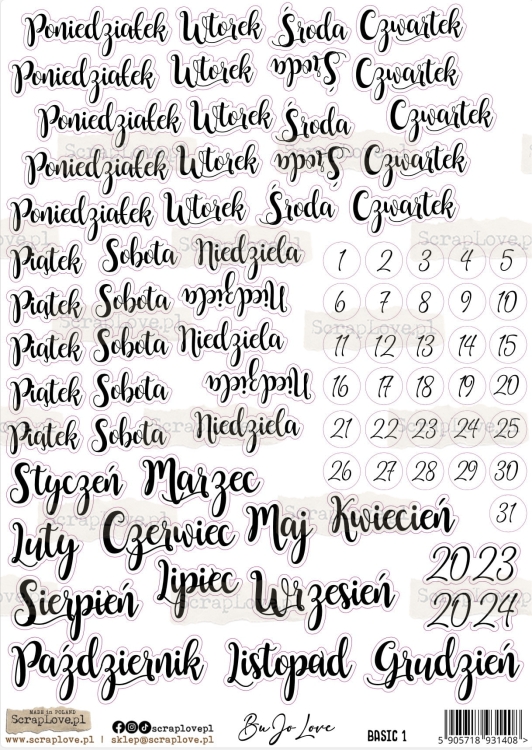 Poniedziałek Wtorek Środa Czwartek
Poniedziałek Wtorek Środa Czwartek
Poniedziałek Wtorek Środa Czwartek
Poniedziałek Wtorek Środa Czwartek
Poniedziałek Wtorek Środa Czwartek
Piątek Sobota Niedziela 1 2 3 4 5
Piątek Sobota Niedziela 6 7 8 9 10
Piątek Sobota Niedziela 11 12 13 14 15
Piątek Sobota Niedziela 16 17 18 19 20
Piątek Sobota Niedziela 21 22 23 24 25
Styczeń Marzec 26 27 28 29 30
31
Luty Czerwiec Maj Kwiecień
Sierpień Lipiec Wrzesień 2023
2024
Październik Listopad Grudzień
MADE in POLAND
ScrapLove.pl
www.scraplove.pl | sklep@scraplove.pl
scraplovepl
Bu Jo Love
BASIC 1
5 905718 931408 >